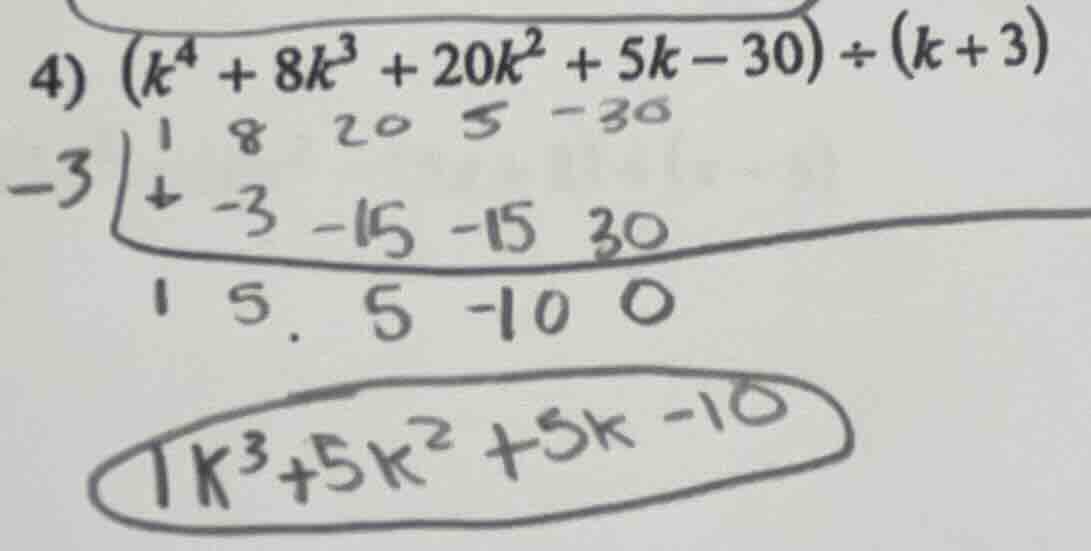 4) (k⁴ + 8k³ + 20k² + 5k − 30) ÷ (k + 3)
1 8 20 5 -30
-3 + -3 -15 -15 30
1 5. 5 -10 0
1k³+5k² +5k -10